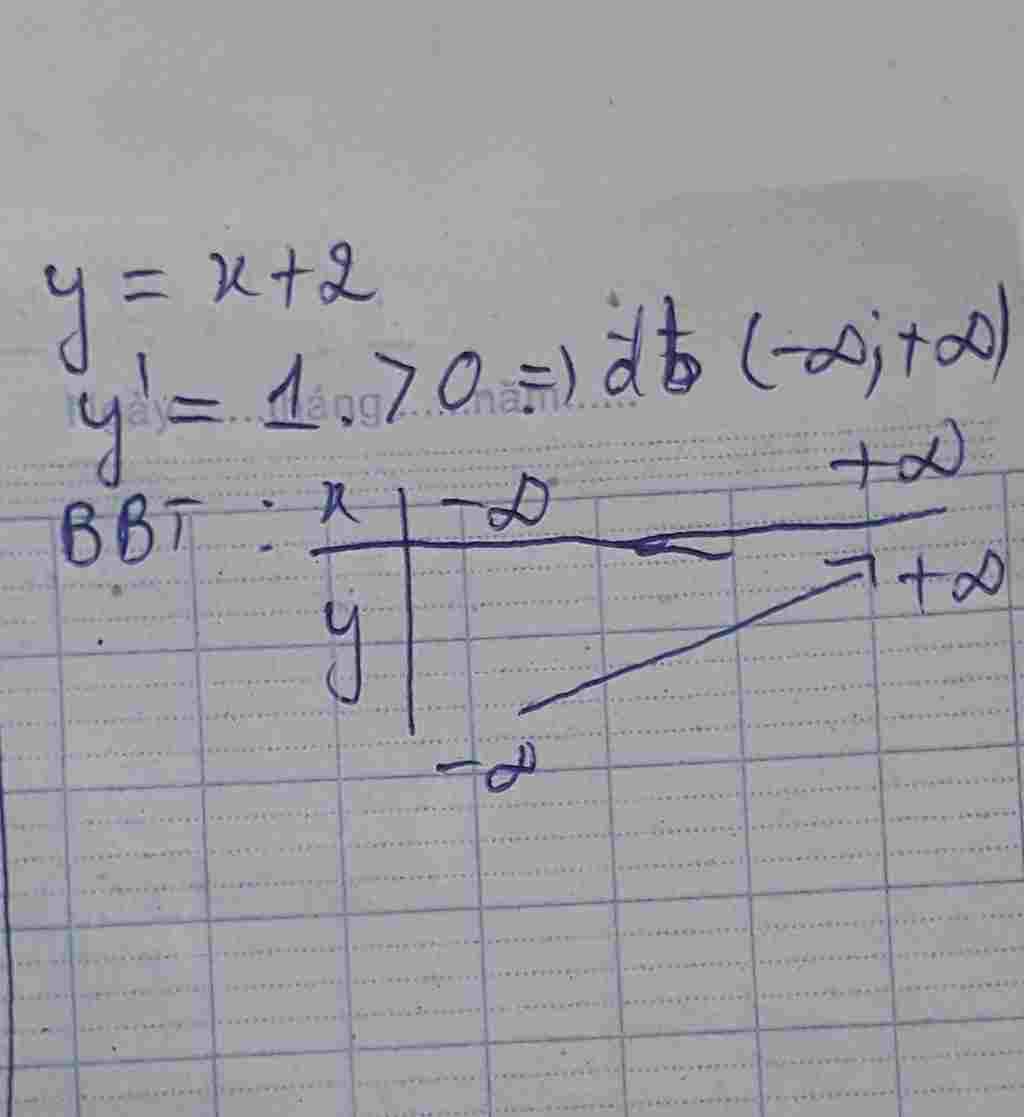 y = x+2
y' = 1 > 0 => đb (-∞; +∞)
Ngày ... tháng ... năm ...
BBT : x -∞ +∞
y +∞
-∞